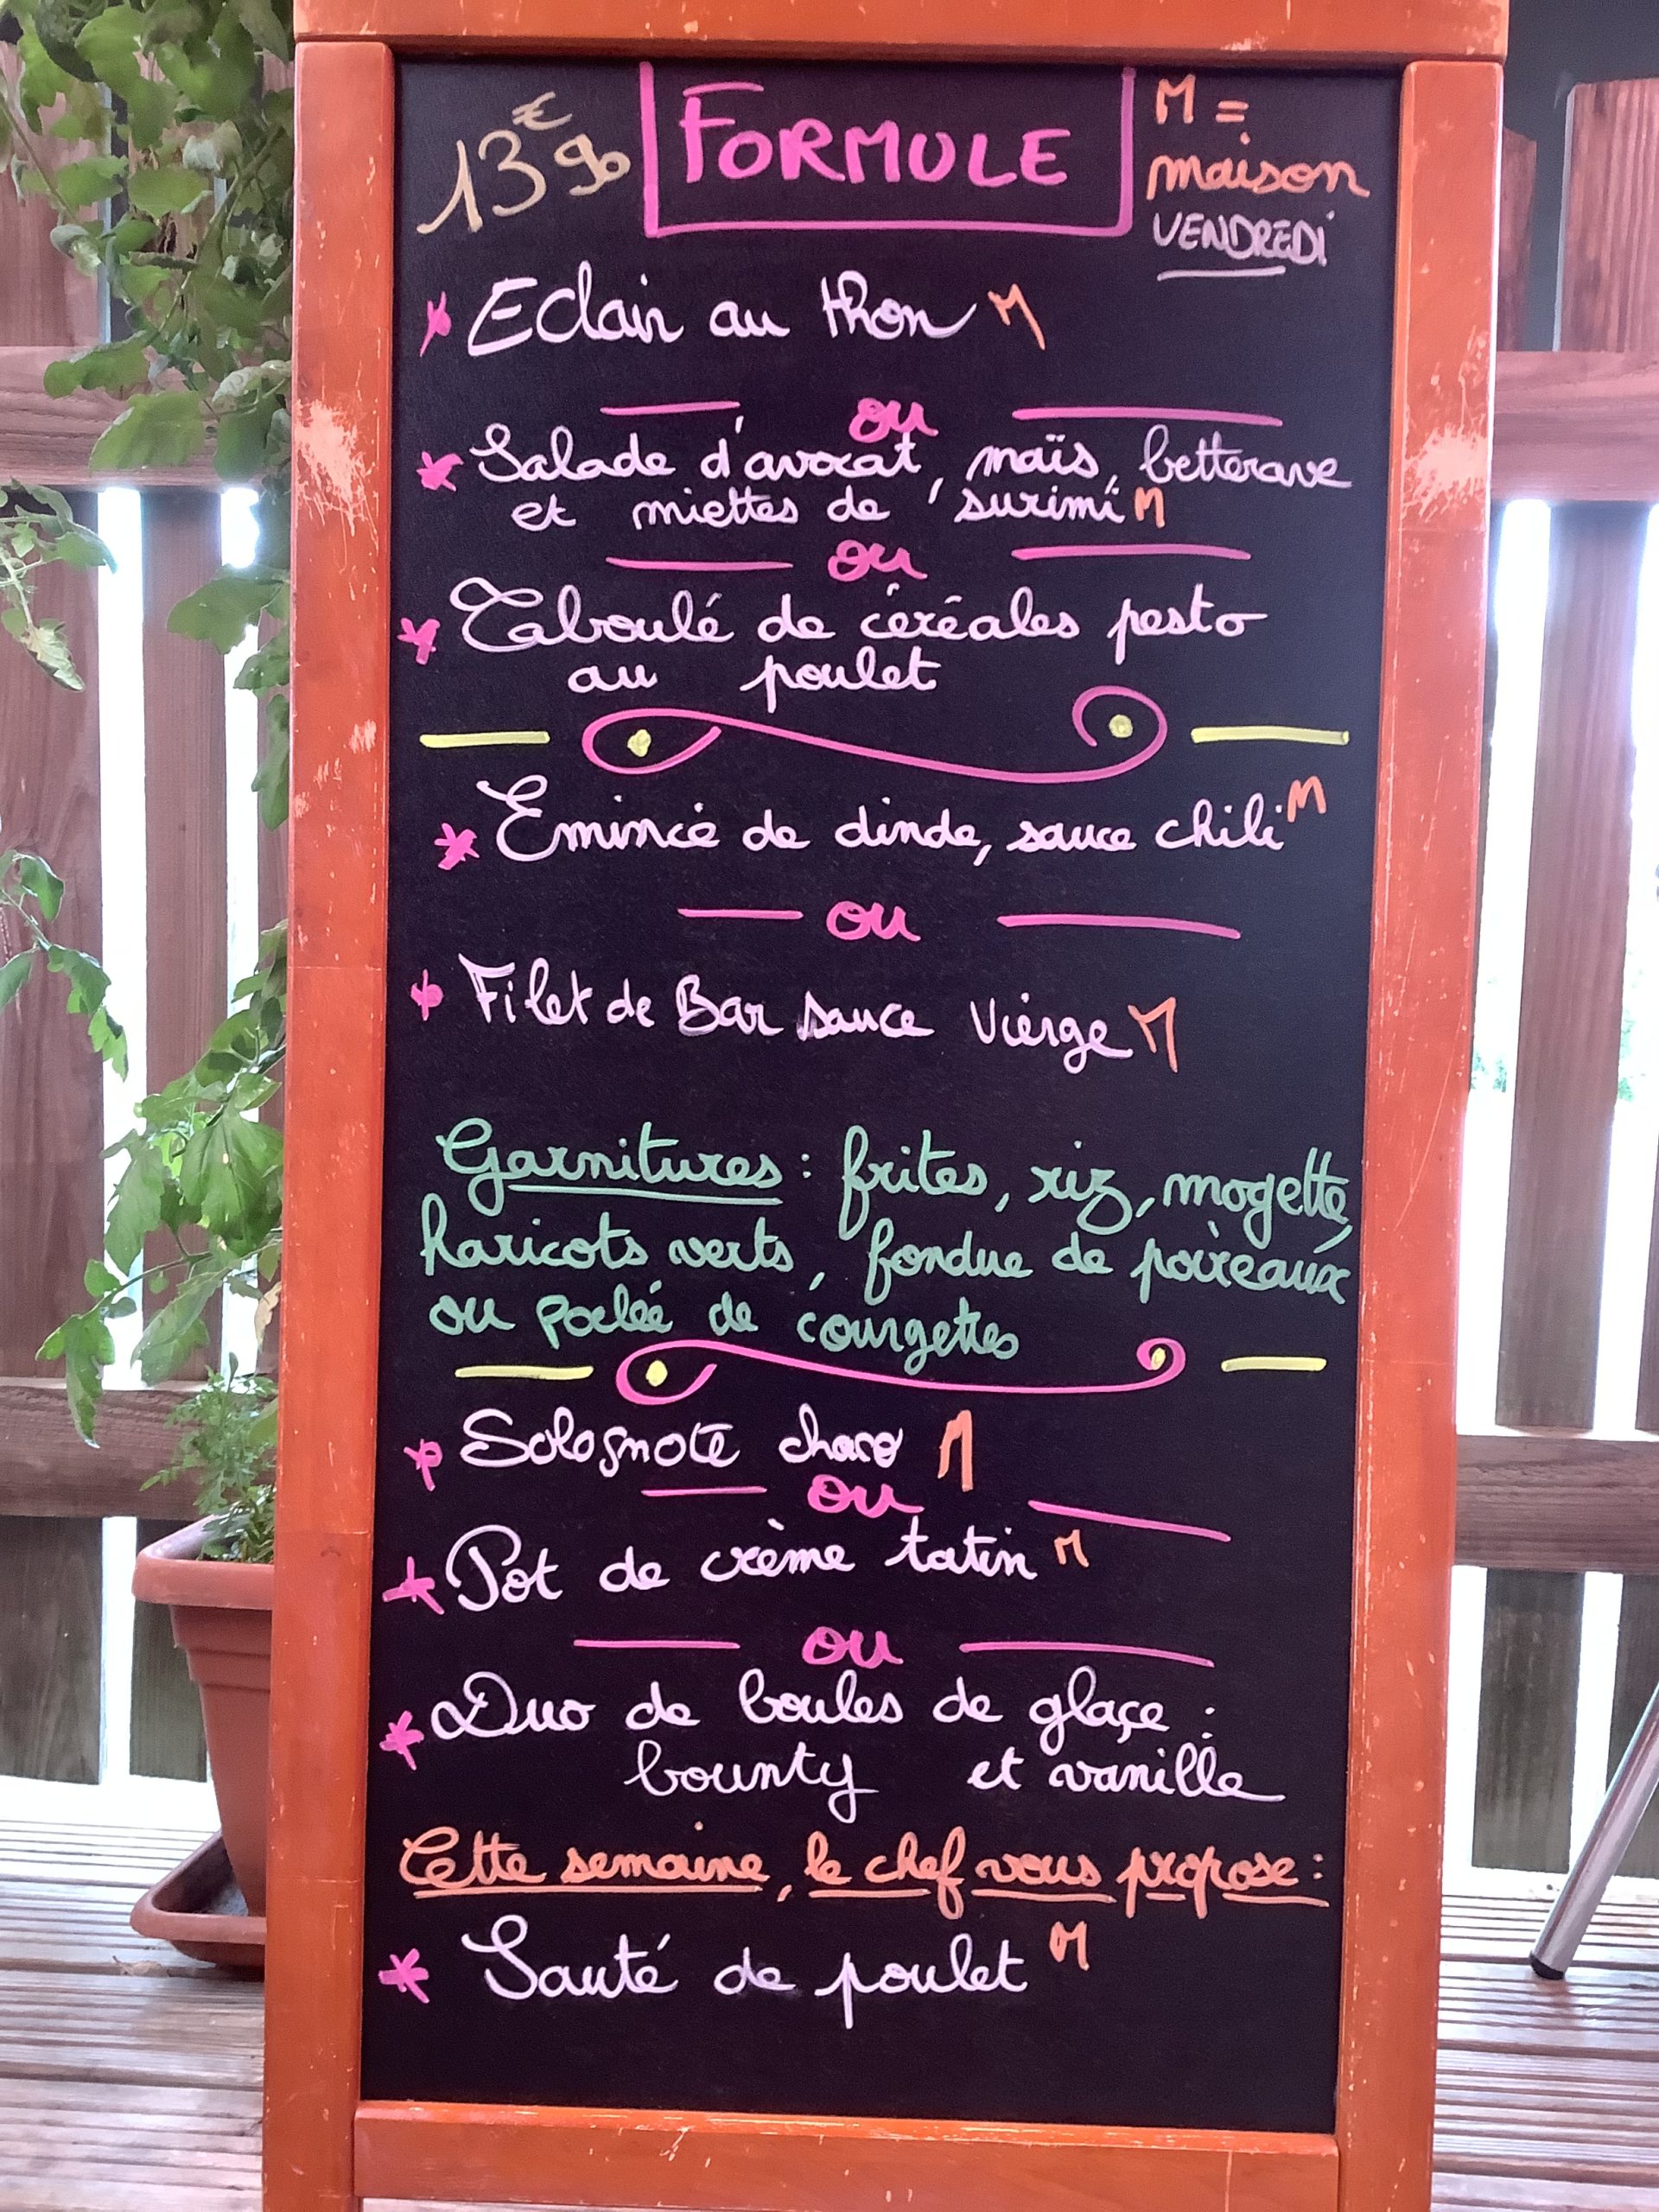 13€90 FORMULE M =
maison
VENDREDI
* Eclair au thon M
ou
* Salade d'avocat, maïs, betterave
et miettes de surimi M
ou
* Taboulé de céréales pesto
au poulet
* Emincé de dinde, sauce chili M
ou
* Filet de Bar sauce Vierge M
Garnitures : frites, riz, mogette,
haricots verts, fondue de poireaux
ou poelée de courgettes
* Solognote choco M
ou
* Pot de crème tatin M
ou
* Duo de boules de glaçe :
bounty et vanille
Cette semaine, le chef vous propose :
* Sauté de poulet M